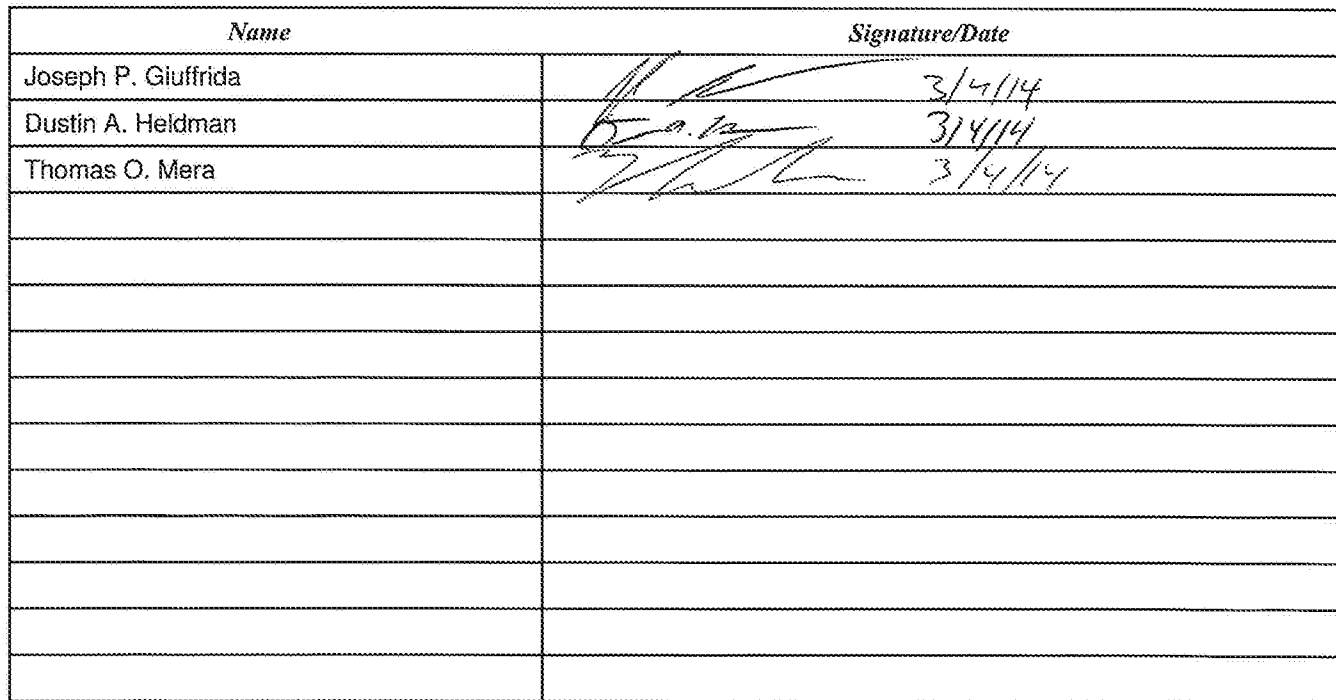 Name Signature/Date
Joseph P. Giuffrida 3/4/14
Dustin A. Heldman 3/4/14
Thomas O. Mera 3/4/14